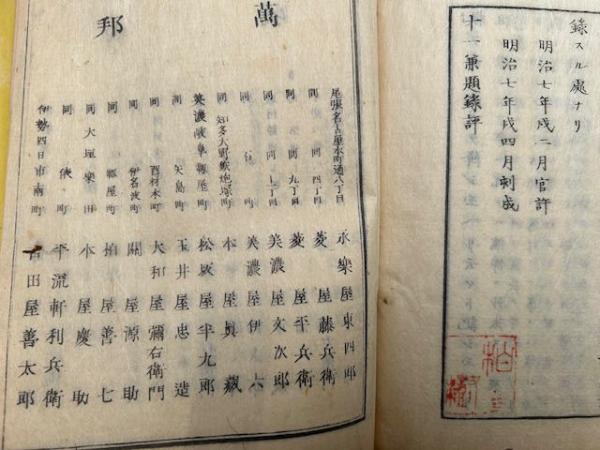 錄スル處ナリ
明治七年戌二月官許
明治七年戌四月刻成
十一兼題錄評
萬
邦
尾張名古屋本町通八丁目 永樂屋東四郎
同 同 四丁目 菱屋藤兵衛
同 同 九丁目 菱屋平兵衛
同 同 十丁目 美濃屋文次郎
同 町 美濃屋伊六
同 知多大野 町 本屋眞藏
美濃岐阜 屋町 松屋半九郎
同 矢島町 玉井屋忠造
同 西材木町 大和屋彌右衛門
同 伊名波町 關屋源助
同 屋町 屋善七
同 大垣 田 本屋慶助
同 俵町 平流軒利兵衛
伊勢四日市南町 田屋善太郎